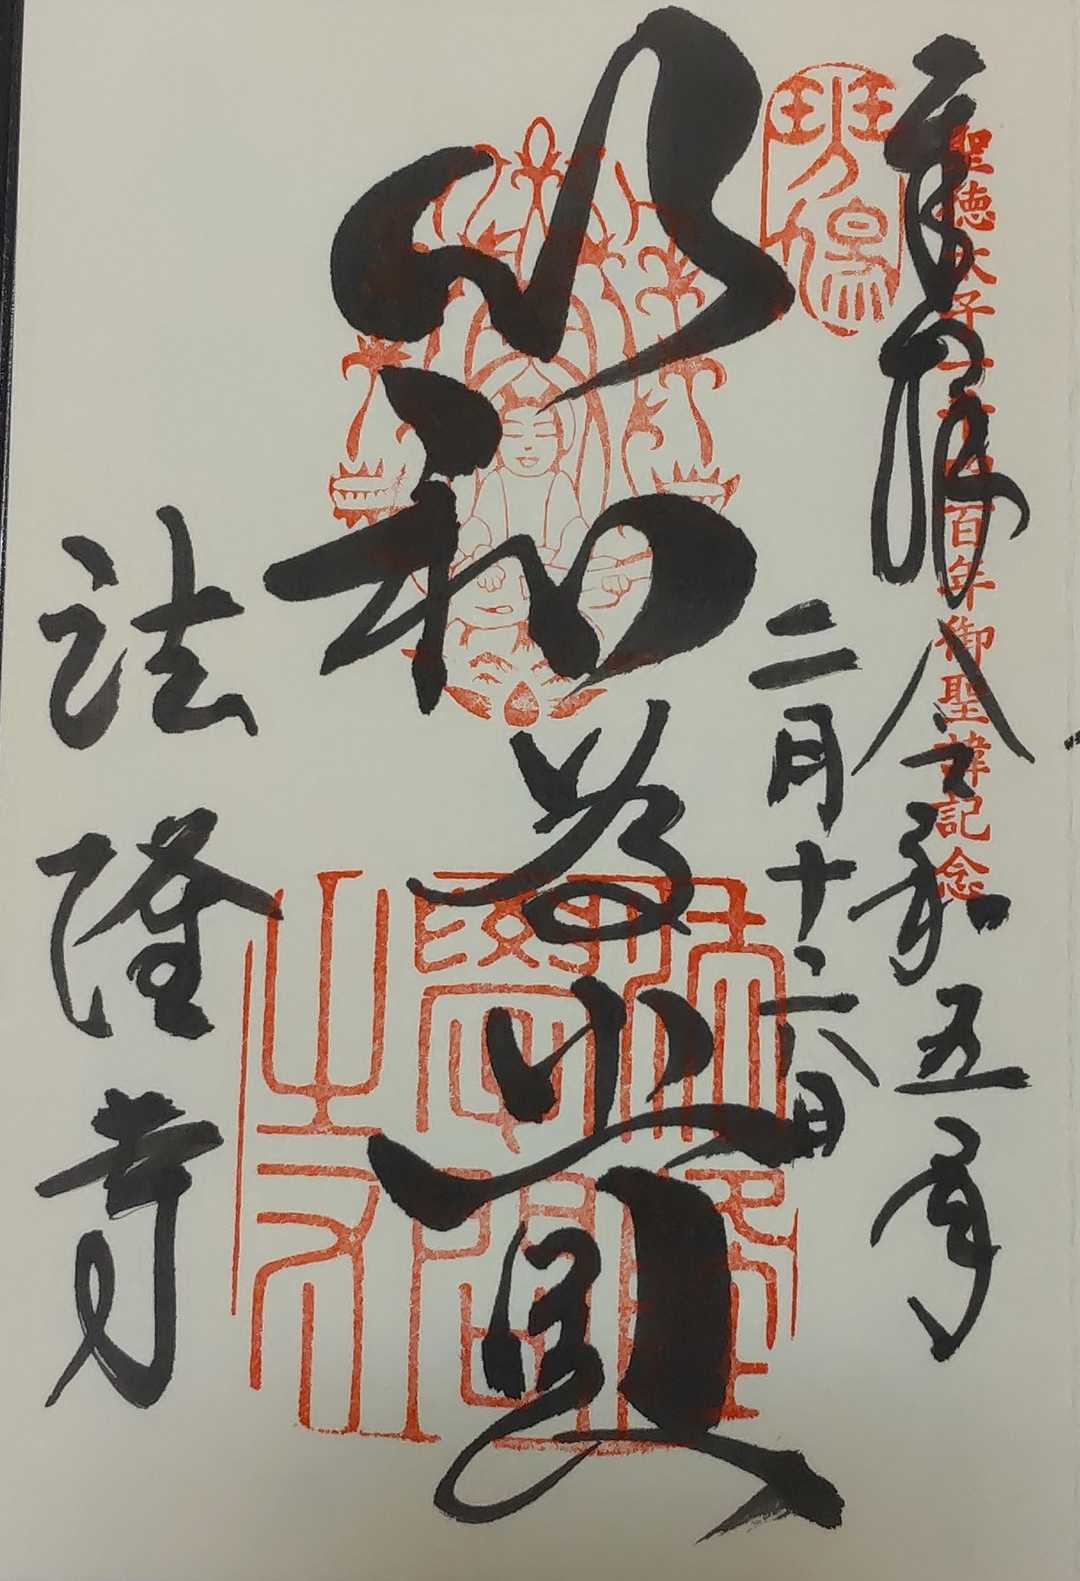 奉拝
令和五年
二月十六日
聖徳太子一千四百年御聖諱記念
斑鳩
以和為貴
法隆學問寺
法隆寺